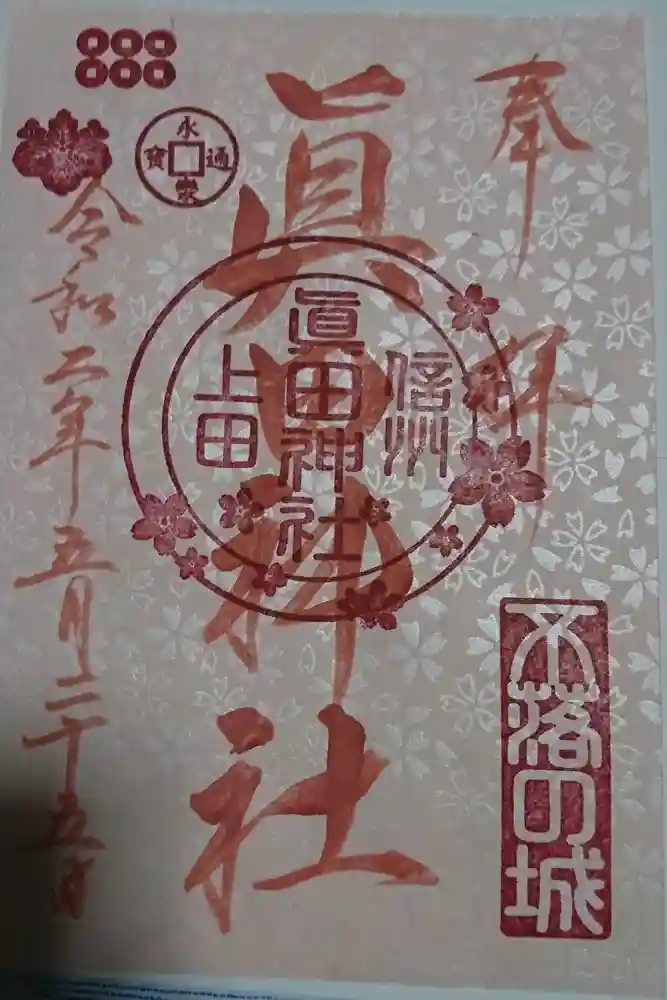 奉拝
眞田神社
信州
眞田神社
上田
不落の城
永通寳
令和二年五月二十五日